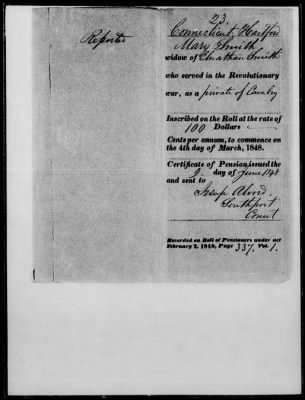 23.
Reported
Connecticut, Hartford
Mary Smith
widow of Elnathan Smith
who served in the Revolutionary
war, as a private of Cavalry
Inscribed on the Roll at the rate of
100 Dollars
Cents per annum, to commence on
the 4th day of March, 1848.
Certificate of Pension issued the
2 day of June 1848
and sent to
Jesup Alvord,
Southport
Connt
Recorded on Roll of Pensioners under act
February 2, 1848, Page 337, Vol. 1.